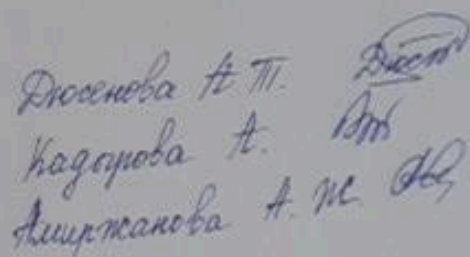 Дюсенова А Т.
Кадырова А.
Амиржанова А. Ж.